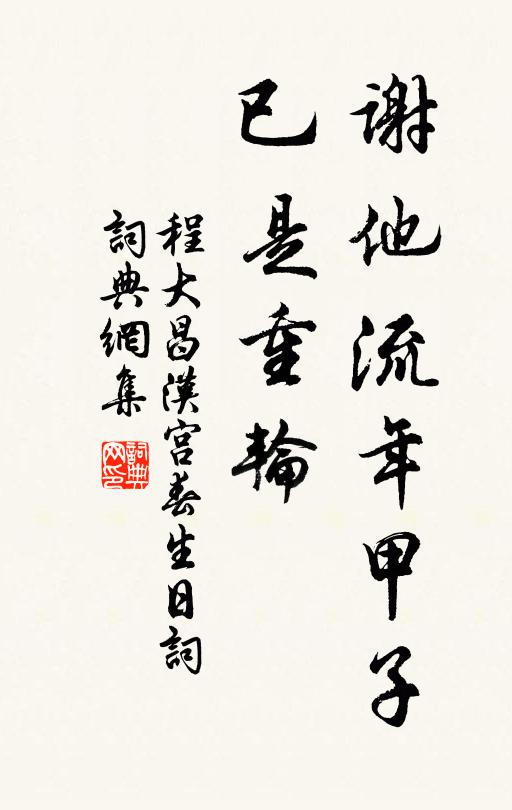 謝他流年甲子
已是重輪
程大昌漢宮春生日詞
詞典網集
詞典網印